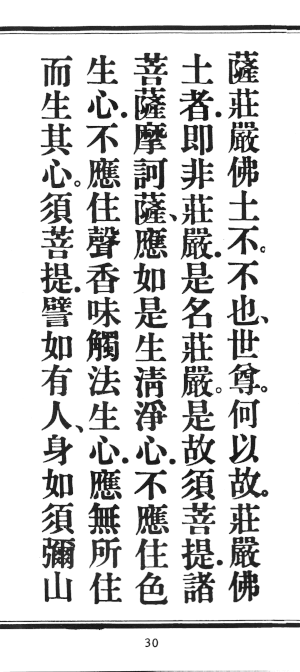 薩莊嚴佛土不。不也、世尊。何以故。莊嚴佛
土者.即非莊嚴.是名莊嚴。是故須菩提.諸
菩薩摩訶薩、應如是生清淨心.不應住色
生心.不應住聲香味觸法生心.應無所住
而生其心。須菩提.譬如有人、身如須彌山
30